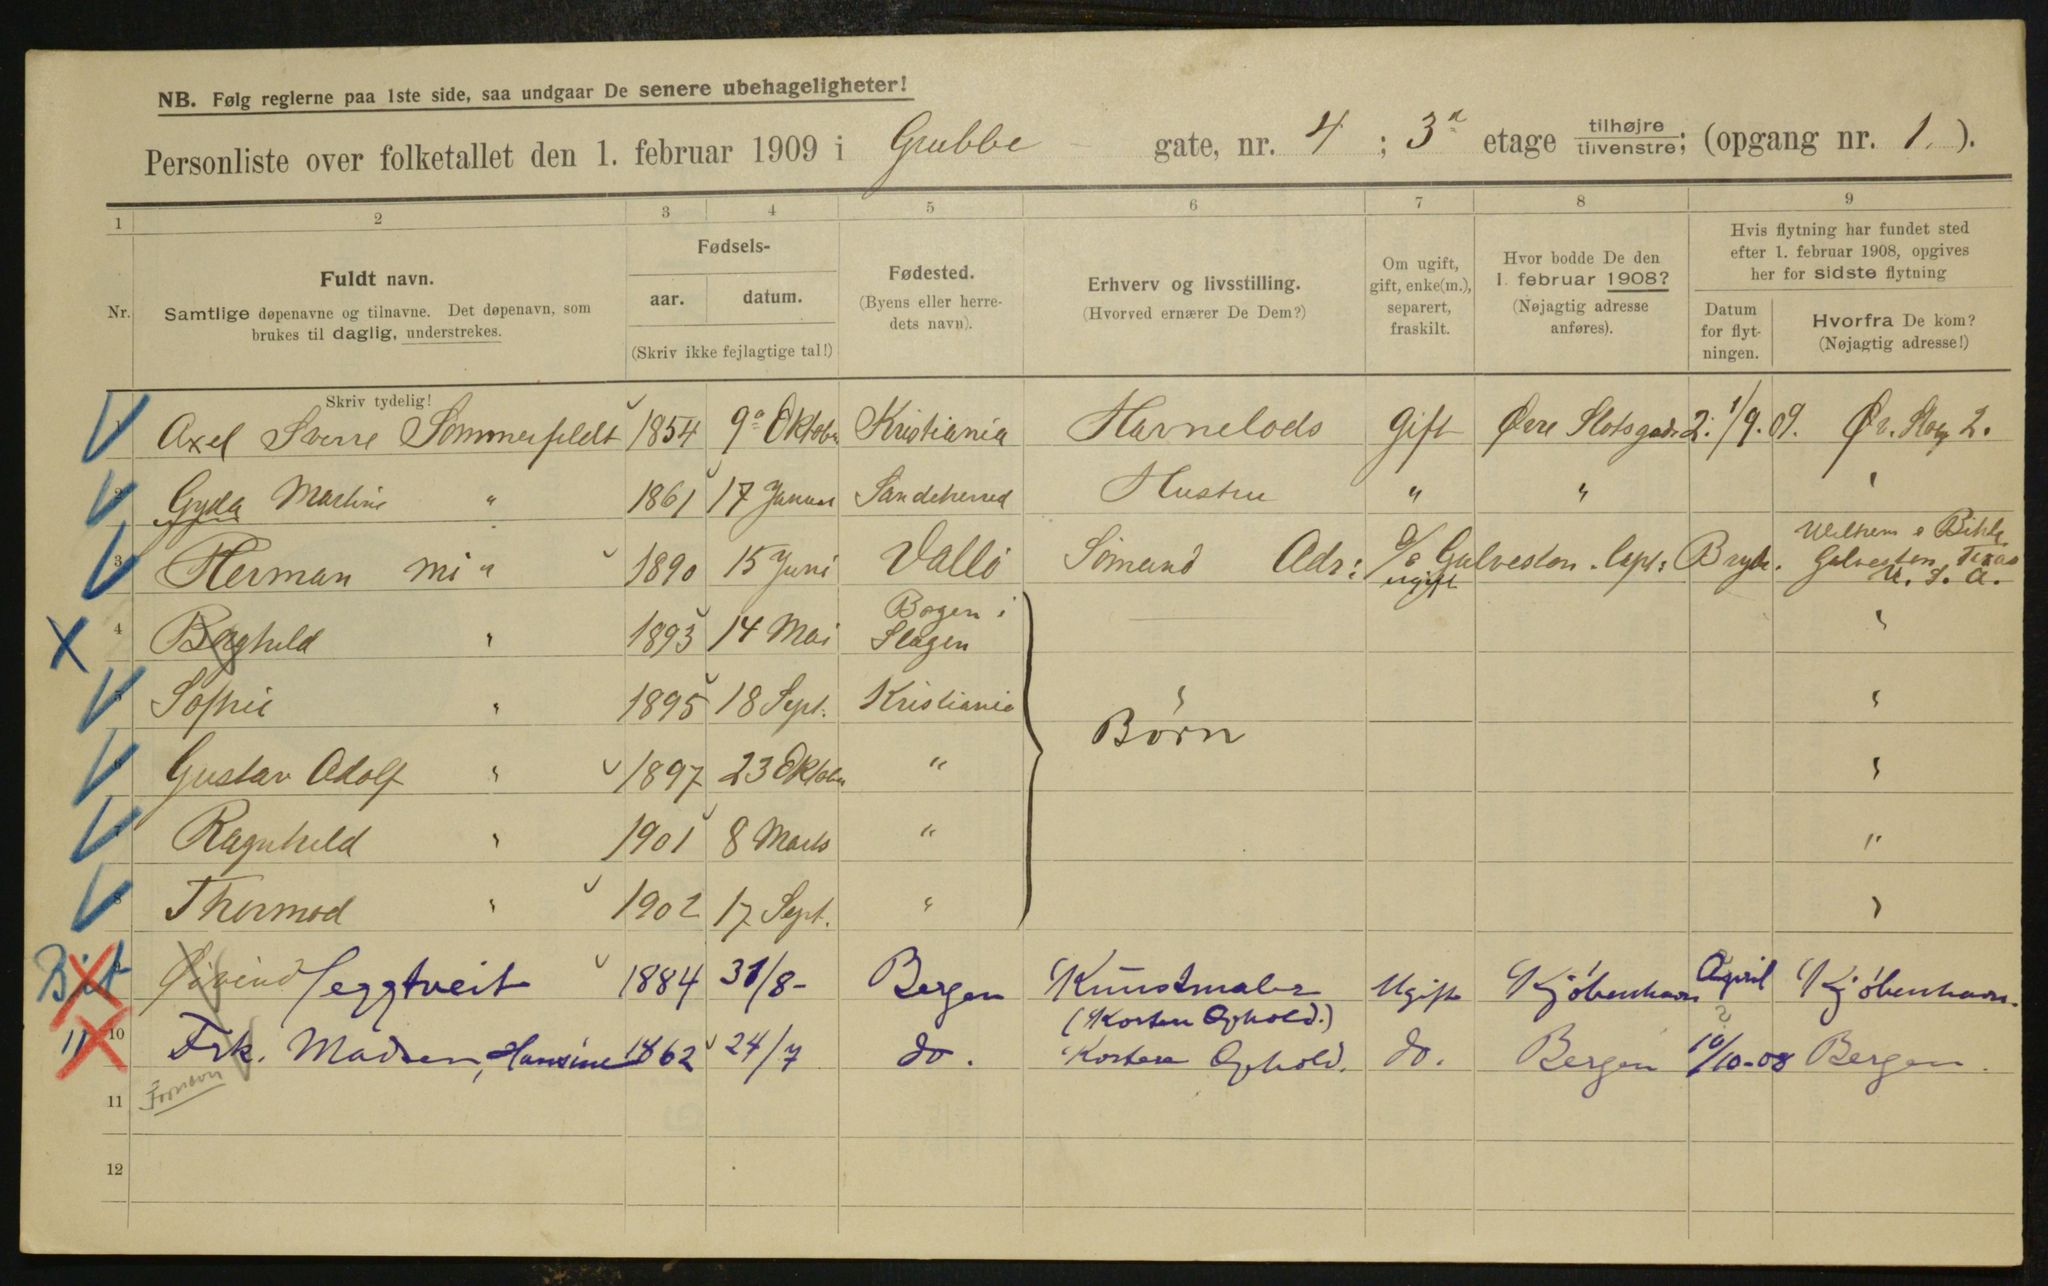 NB. Følg reglerne paa 1ste side, saa undgaar De senere ubehageligheter!
Personliste over folketallet den 1. februar 1909 i Grubbe gate, nr. 4 ; 3 etage tilhøjre tilvenstre; (opgang nr. 1. ).
1 2 3 4 5 6 7 8 9
Nr.
Fuldt navn.
Samtlige døpenavne og tilnavne. Det døpenavn, som
brukes til daglig, understrekes.
Fødsels-
aar. datum.
(Skriv ikke fejlagtige tal!)
Fødested.
(Byens eller herre-
dets navn).
Erhverv og livsstilling.
(Hvorved ernærer De Dem?)
Om ugift,
gift, enke(m.),
separert,
fraskilt.
Hvor bodde De den
1. februar 1908?
(Nøjagtig adresse
anføres).
Hvis flytning har fundet sted
efter 1. februar 1908, opgives
her for sidste flytning
Datum
for flyt-
ningen.
Hvorfra De kom?
(Nøjagtig adresse!)
Skriv tydelig!
1 Axel Sverre Sømmerfeldt 1854 9 Oktober Kristiania Havnelods Gift Øvre Slotsgade 2. 1/9. 09. Øv. Slotsg 2.
2 Gyda Martine " 1861 17 Januar Sandeherred Hustru " " "
3 Herman " 1890 15 Juni Vallö Sømand Adr: c/o Galveston. Capt: Bryde. Wilhem & Biehl
ugift Galveston Texas
U. S. A.
4 Borghild " 1893 14 Mai Bogen i
Slagen "
5 Sofhie " 1895 18 Sept. Kristiania "
Børn
6 Gustav Adolf " 1897 23 Oktober " "
7 Ragnhild " 1901 8 Marts " "
8 Thormod " 1902 17 Sept. " "
9 Øivind Seggtveit 1884 31/8- Bergen Kunstmaler Ugift Kjøbenhavn April Kjøbenhavn.
(Kortere Ophold.) ?
10 Frk. Madsen, Hansine 1862 24/7 do. Kortere Ophold. do. Bergen 10/10-08 Bergen.
Fornavn
11
12